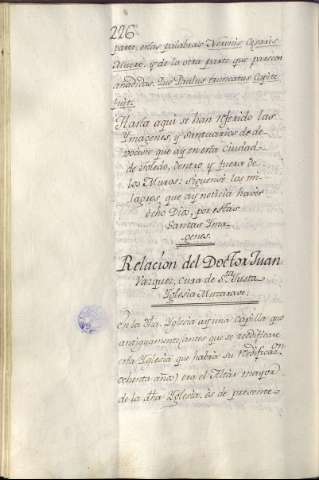 226
parte, estas palabras
Altero, y de la otra parte que parecen
añadidas. Qui Paulus truncatus Capite
fuit.
Hasta aqui se han referido las
Imagenes, y santuarios de de-
vocion que ay en esta ciudad
de Toledo, dentro, y fuera de
los Muros: siguense los mi-
lagros, que ay noticia haver
echo Dios, por estas
santas Ima-
genes.
Relacion del Doctor Juan
Vazquez, cura de Sta. Justa
Yglesia Muzarave.
en la dha. Yglesia ay una Capilla que
antiguamente (antes que se redificase
esta Yglesia que habra su redificacon
ochenta años) era el Altar mayor
de la dha Yglesia, os de presente